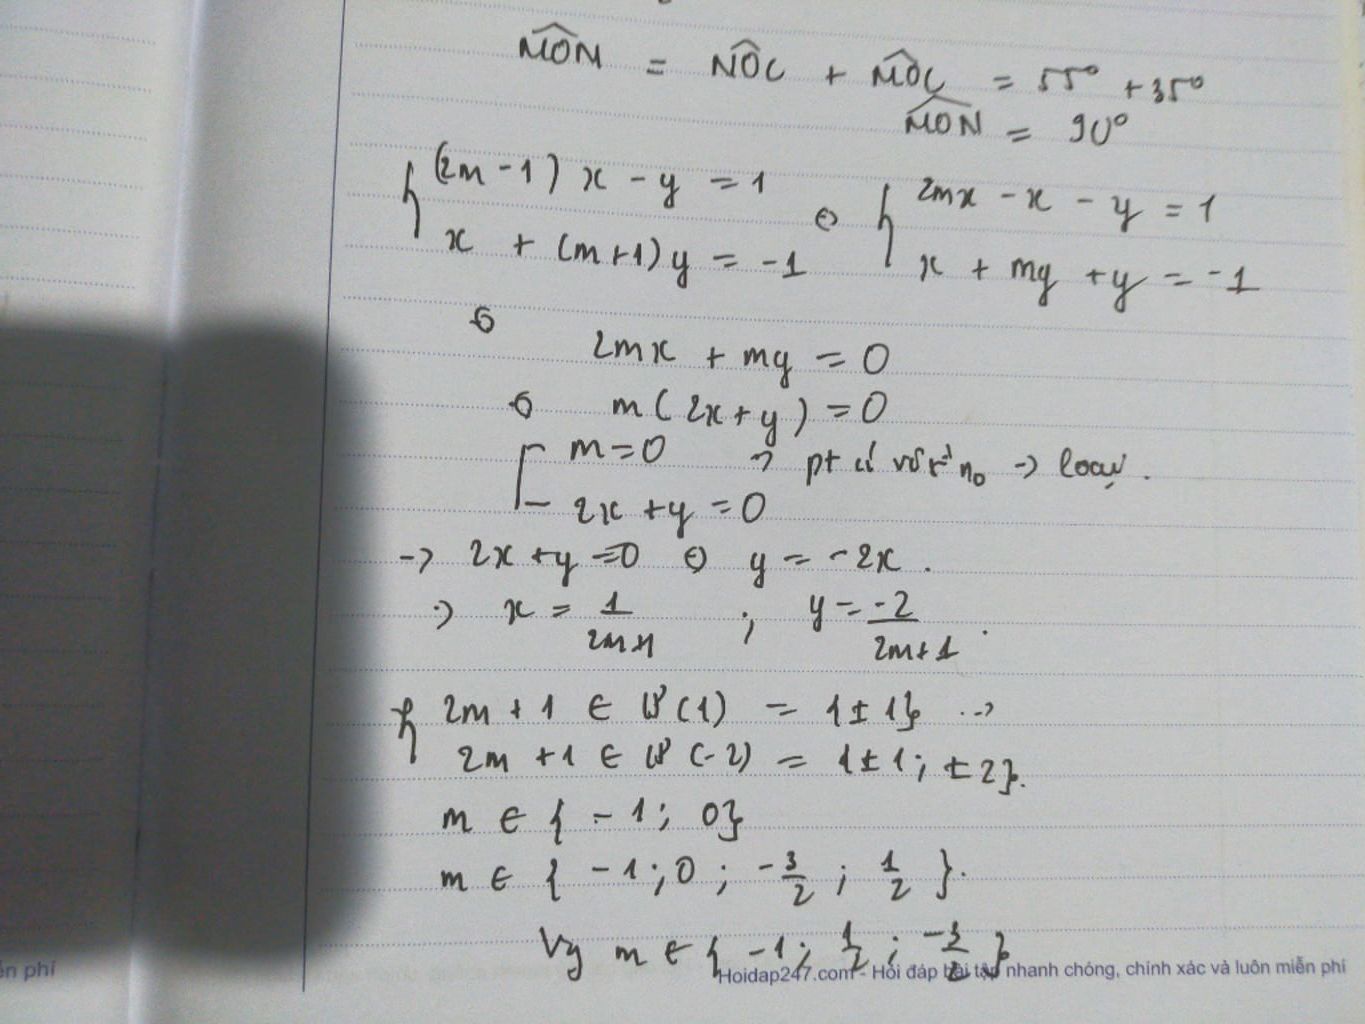 MÔN = NÔC + MÔC = 55° + 35°
MÔN = 90°
{ (2m - 1) x - y = 1
x + (m+1) y = -1
⇔ { 2mx - x - y = 1
x + my + y = -1
⇔ 2mx + my = 0
⇔ m ( 2x + y ) = 0
[ m = 0 → pt có vô số n₀ → loại .
2x + y = 0
→ 2x + y = 0 ⇔ y = -2x .
⇒ x = 1/(2m+1) ; y = -2/(2m+1) .
{ 2m + 1 ∈ Ư (1) = {± 1} →
2m + 1 ∈ Ư (-2) = {± 1 ; ± 2}.
m ∈ { - 1 ; 0}
m ∈ { - 1 ; 0 ; -3/2 ; 1/2 }.
Vy m ∈ { -1 ; 1/2 ; -3/2 }
ễn phí
Hoidap247.com - Hỏi đáp bài tập nhanh chóng, chính xác và luôn miễn phí